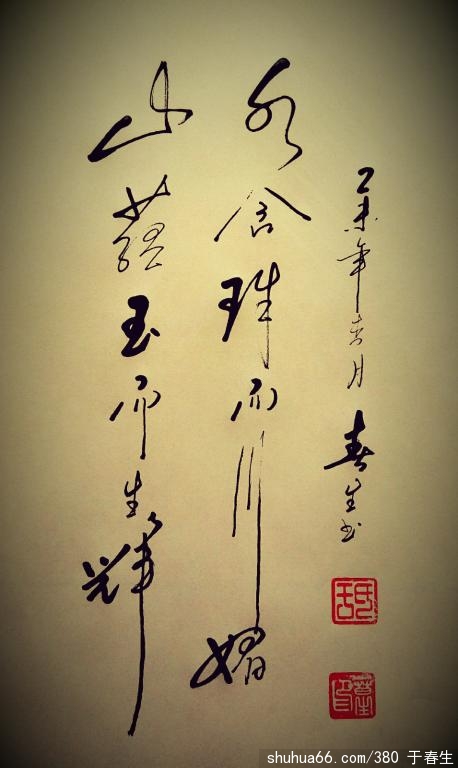 山蕴玉而生辉
水含珠而川媚
乙未年吉月 春生书
shuhua66.com/380 于春生